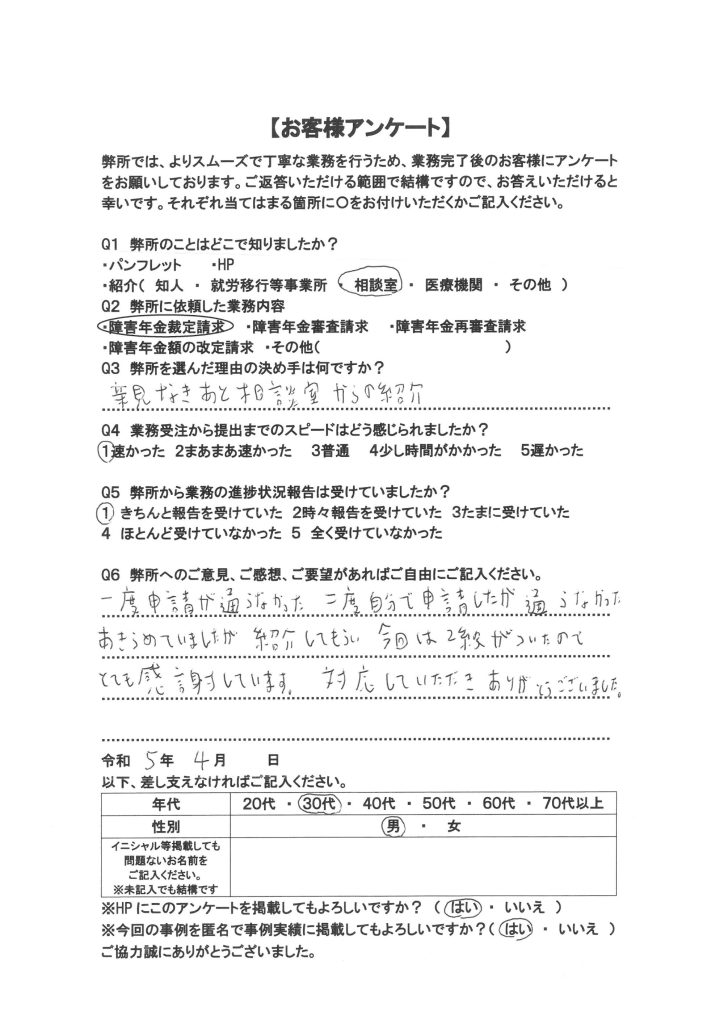 【お客様アンケート】
弊所では、よりスムーズで丁寧な業務を行うため、業務完了後のお客様にアンケート
をお願いしております。ご返答いただける範囲で結構ですので、お答えいただけると
幸いです。それぞれ当てはまる箇所に○をお付けいただくかご記入ください。
Q1 弊所のことはどこで知りましたか？
・パンフレット ・HP
・紹介（ 知人 ・ 就労移行等事業所 ・ 相談室 ・ 医療機関 ・ その他 ）
Q2 弊所に依頼した業務内容
・障害年金裁定請求 ・障害年金審査請求 ・障害年金再審査請求
・障害年金額の改定請求 ・その他（ ）
Q3 弊所を選んだ理由の決め手は何ですか？
あと相談室からの紹介
Q4 業務受注から提出までのスピードはどう感じられましたか？
1速かった 2まあまあ速かった 3普通 4少し時間がかかった 5遅かった
Q5 弊所から業務の進捗状況報告は受けていましたか？
1 きちんと報告を受けていた 2時々報告を受けていた 3たまに受けていた
4 ほとんど受けていなかった 5 全く受けていなかった
Q6 弊所へのご意見、ご感想、ご要望があればご自由にご記入ください。
一度申請が通らなかった 二度自分で申請したが 通らなかった
あきらめていましたが 紹介してもらい 今回は2級がついたので
とても感謝しています。 対応していただき ありがとうございました。
令和 5年 4月 日
以下、差し支えなければご記入ください。
年代 20代 ・ 30代 ・ 40代 ・ 50代 ・ 60代 ・ 70代以上
性別 男 ・ 女
イニシャル等掲載しても
問題ないお名前を
ご記入ください。
※未記入でも結構です
※HPにこのアンケートを掲載してもよろしいですか？（ はい ・ いいえ ）
※今回の事例を匿名で事例実績に掲載してもよろしいですか？（ はい ・ いいえ ）
ご協力誠にありがとうございました。